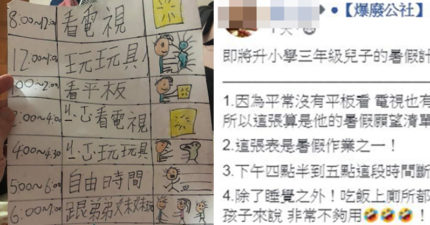 8:00~12:00 看電視
玩玩具
看平板
看電視
4:00~4:30 玩玩具
5:00~6:00 自由時間
跟弟弟
【爆廢公社】
即將升小學三年級兒子的暑假計
1.因為平常沒有平板看 電視也有
所以這張算是他的暑假願望清單
2.這張表是暑假作業之一！
3.下午四點半到五點這段時間斷
4.除了睡覺之外！吃飯上廁所都
孩子來說 非常不夠用🤣🤣🤣！